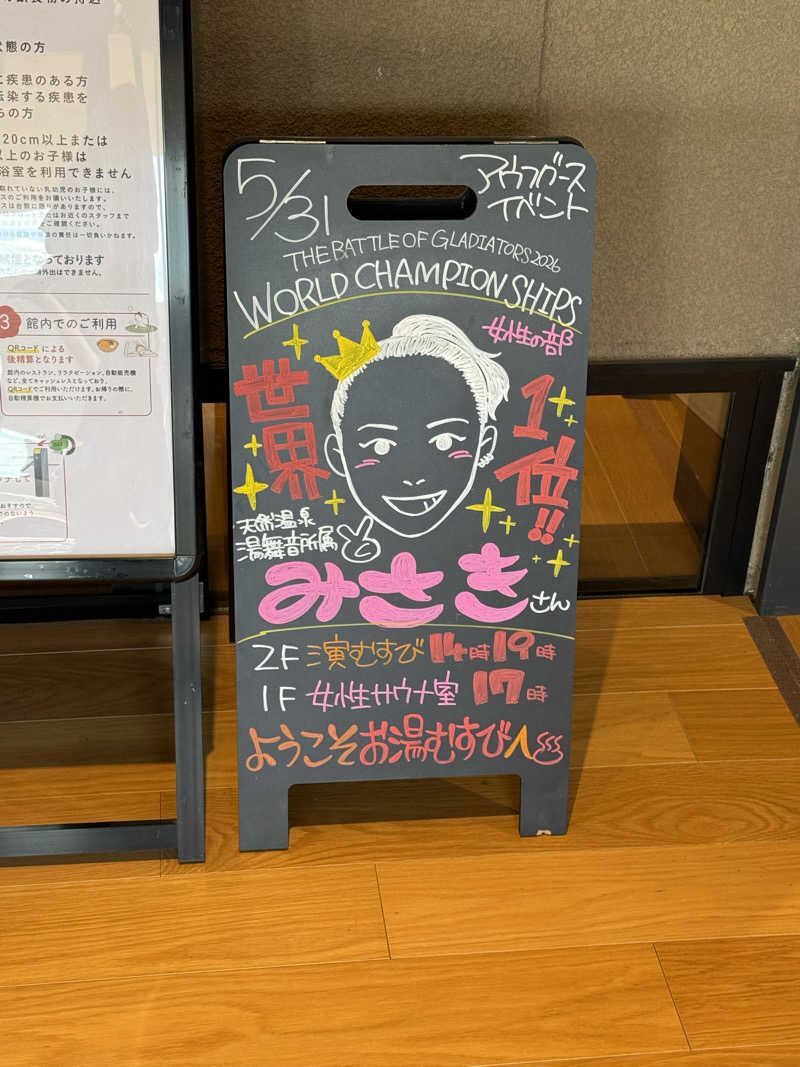 状態の方
に疾患のある方
伝染する疾患を
ちの方
20cm以上または
以上のお子様は
浴室を利用できません
取れていない乳幼児のお子様には、
スのご利用をお願いいたします。
またはお近くのスタッフまで
ご確認ください。
の責任は一切負いかねます。
となっております
外出はできません。
3 館内でのご利用
QRコードによる
後精算となります
館内のレストラン、リラクゼーション、自動販売機
など、全てキャッシュレスとなっており、
QRコードでご利用いただけます。お帰りの際に、
自動精算機でお支払いいただきます。
5/31
アウフグース
イベント
THE BATTLE OF GLADIATORS 2026
WORLD CHAMPIONSHIPS
女性の部
世界
1位!!
天然温泉
湯舞音所属
みさきさん
2F 演むすび 14時 19時
1F 女性サウナ室 17時
ようこそお湯むすびへ